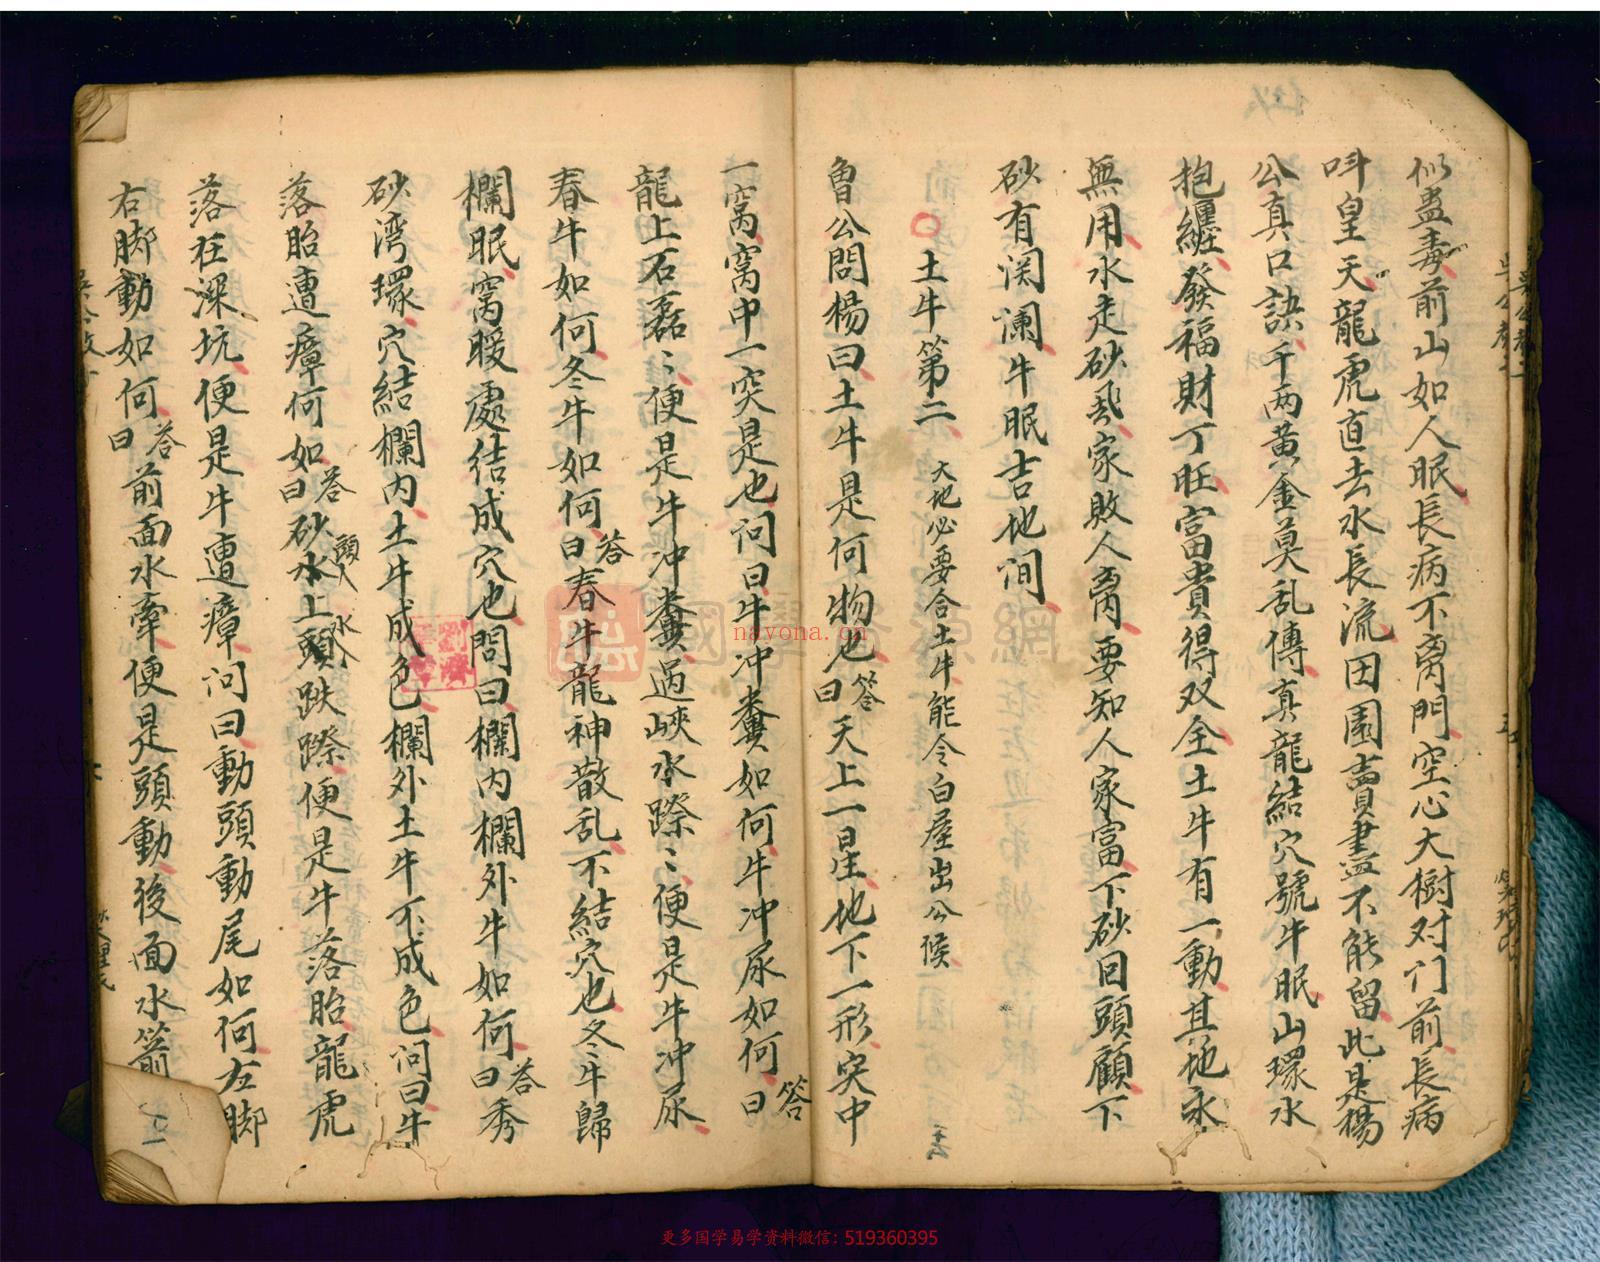 似蛊毒前山如人眠長病不离門空心大樹对门前長病
呌皇天龍虎直去水長流田園賣盡不能留此是楊
公真口訣千两黄金莫乱傳真龍結穴號牛眠山環水
抱纏發福財丁旺富貴得双全土牛有一動其地永
無用水走砂飛家敗人离要知人家富下砂回頭顧下
砂有関澜牛眠吉地间
○土牛第二 大地必要合土牛能令白屋出公候
魯公問楊曰土牛是何物也答曰天上一星地下一形突中
一窩窩中一突是也问曰牛冲糞如何牛冲尿如何答曰
龍上石磊〻便是牛冲糞過峽水際〻便是牛冲尿
春牛如何冬牛如何答曰春牛龍神散乱不結穴也冬牛歸
欄眠窩暖處结成穴也問曰欄内欄外牛如何答曰秀
砂湾環穴結欄内土牛成色欄外土牛不成色问曰牛
落胎遭瘴何如答曰砂水上頭跌際便是牛落胎龍虎
頭入水入
落在深坑便是牛遭瘴问曰動頭動尾如何左脚
右脚動如何答曰前面水牽便是頭動後面水箭
國學資源網
nayona.cn
更多国学易学资料微信：519360395